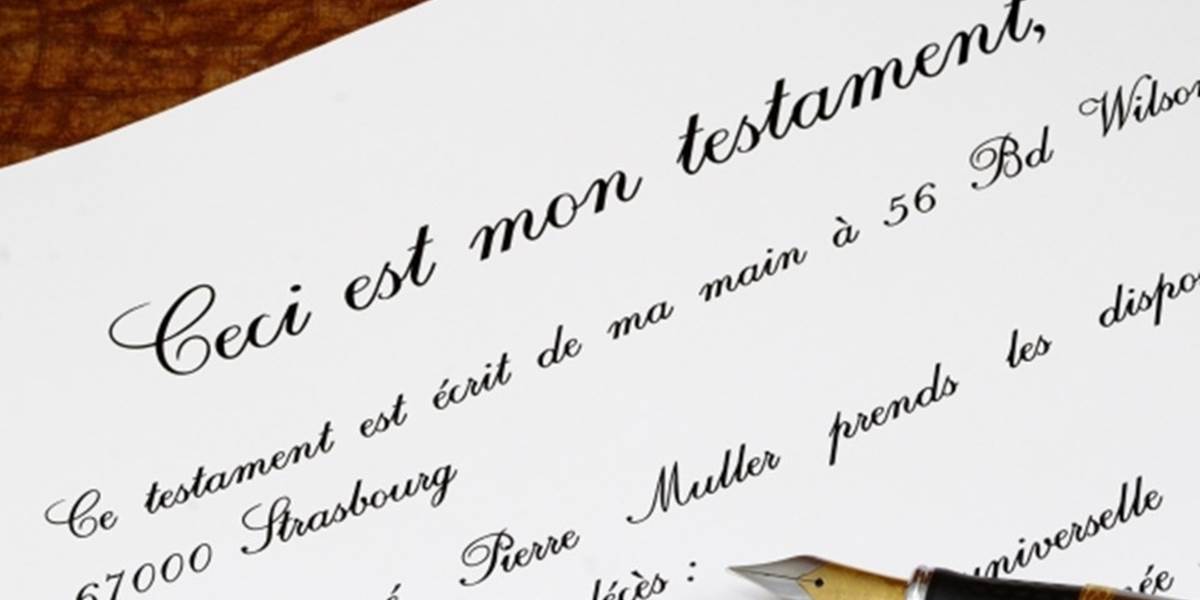 Ceci est mon testament,
Ce testament est écrit de ma main à 56 Bd Wilson
67000 Strasbourg
Pierre Muller prends les
universelle